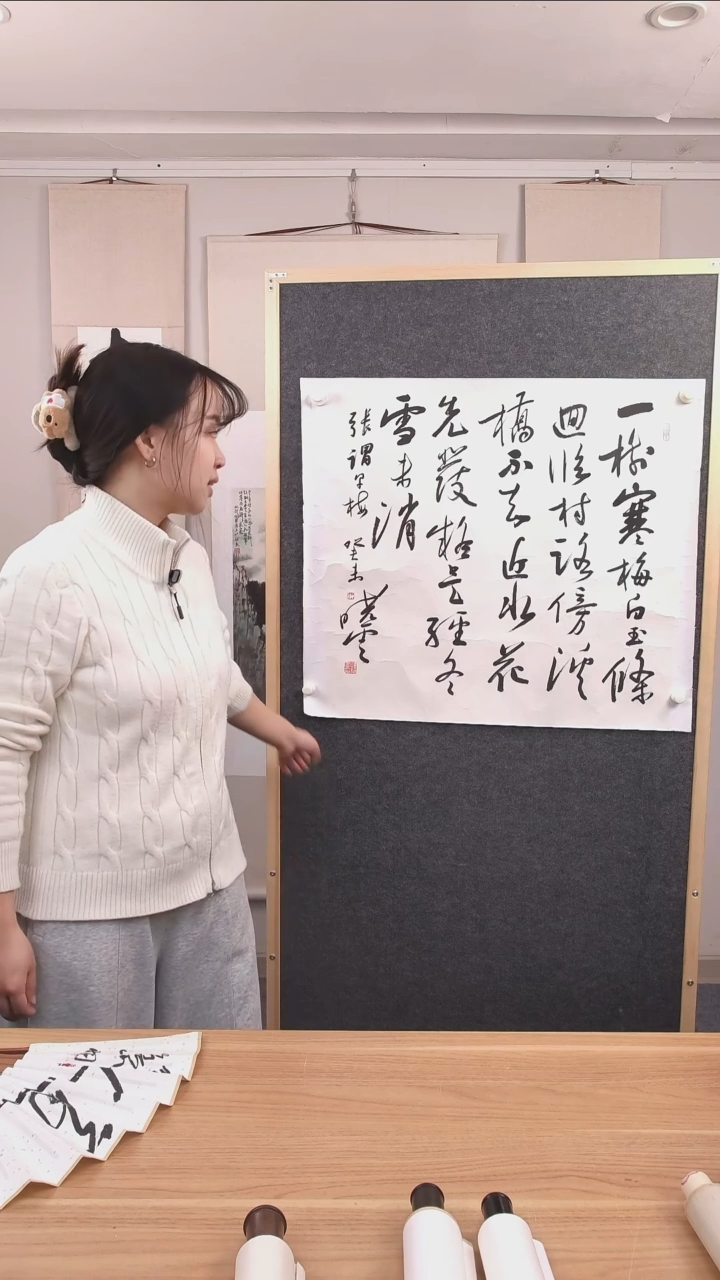 一樹寒梅白玉條
迴臨村路傍溪
橋不知近水花
先發疑是經冬
雪未消
張謂早梅 癸未 曉雲